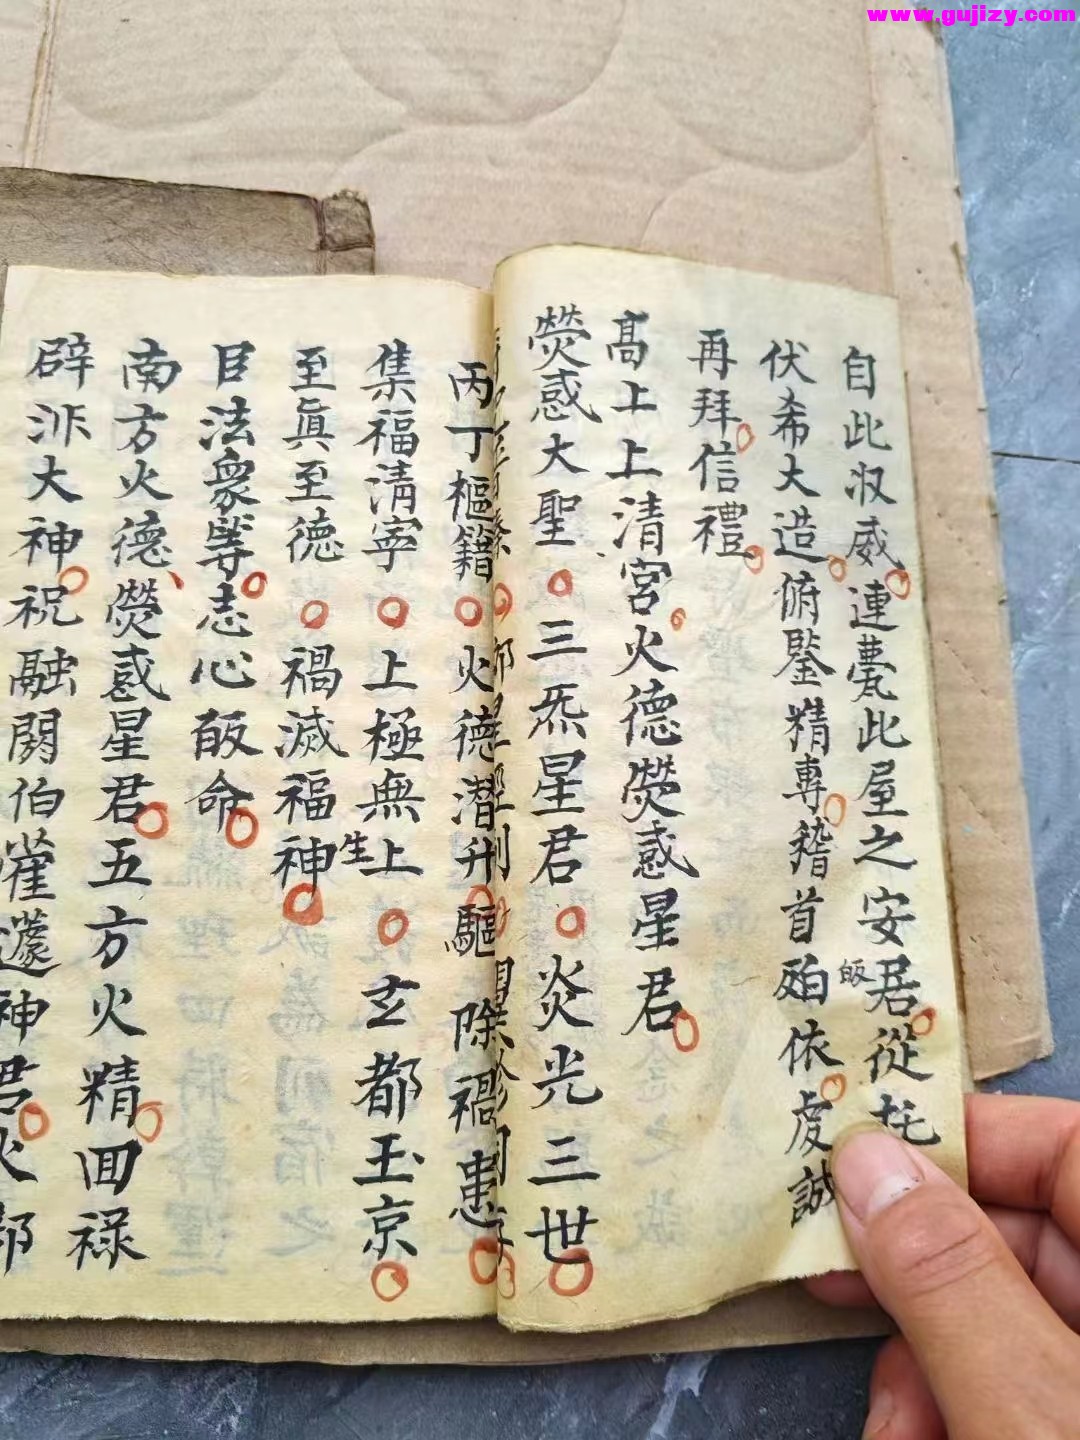 www.gujizy.com
自此収威連甍此屋之安居從托
皈
伏希大造俯鍳精專稽首皈依虔誠
再拜信禮
高上上清宮火德熒惑星君
熒惑大聖三炁星君炎光三世
丙丁樞籍火德潛升驅除禍患
集福清寧上極無上玄都玉京
生
至眞至德禍滅福神
目法衆等志心皈命
南方火德熒惑星君五方火精回禄
辟
大神祝融閼伯
神君火部